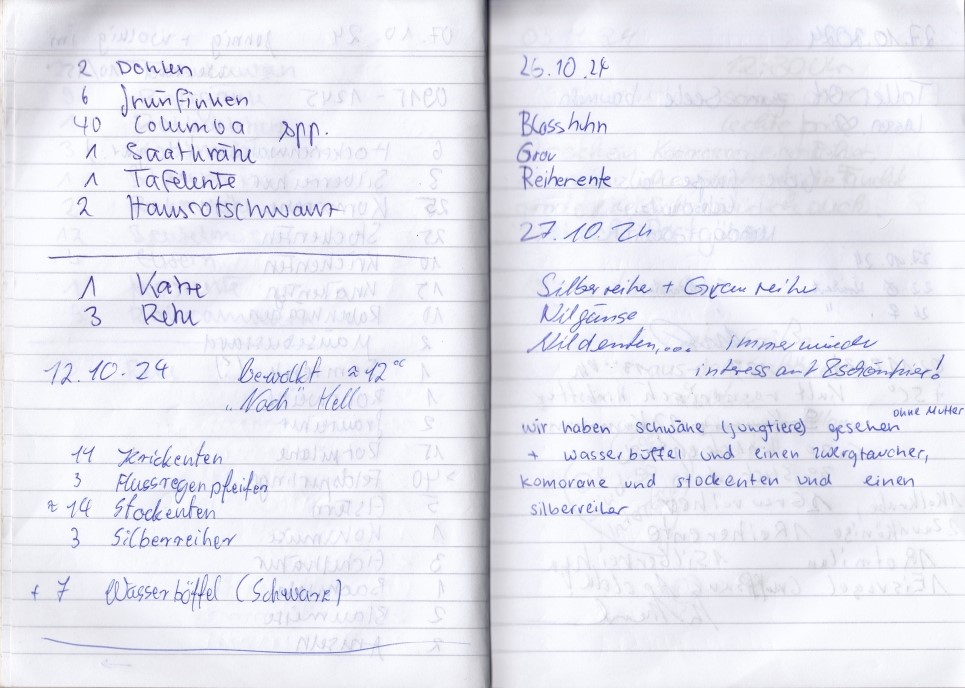 2 Dohlen
6 Grünfinken
40 Columba spp.
1 Saatkrähe
1 Tafelente
2 Hausrotschwanz
1 Katze
3 Rehe
12.10.24 Bewölkt ≈ 12°C
"Noch" Hell
14 Krickenten
3 Flussregenpfeifen
≈ 14 Stockenten
3 Silberreiher
+ 7 Wasserböffel (Schwarz)
26.10.24
Blasshuhn
Grau
Reiherente
27.10.24
Silberreiher + Graureiher
Nilgänse
Wildenten,... immer wieder
interessant & schön hier!
ohne Mutter
wir haben schwäne (jungtiere) gesehen
+ wasserbüffel und einen zwergtaucher,
komorane und stockenten und einen
silberreiher